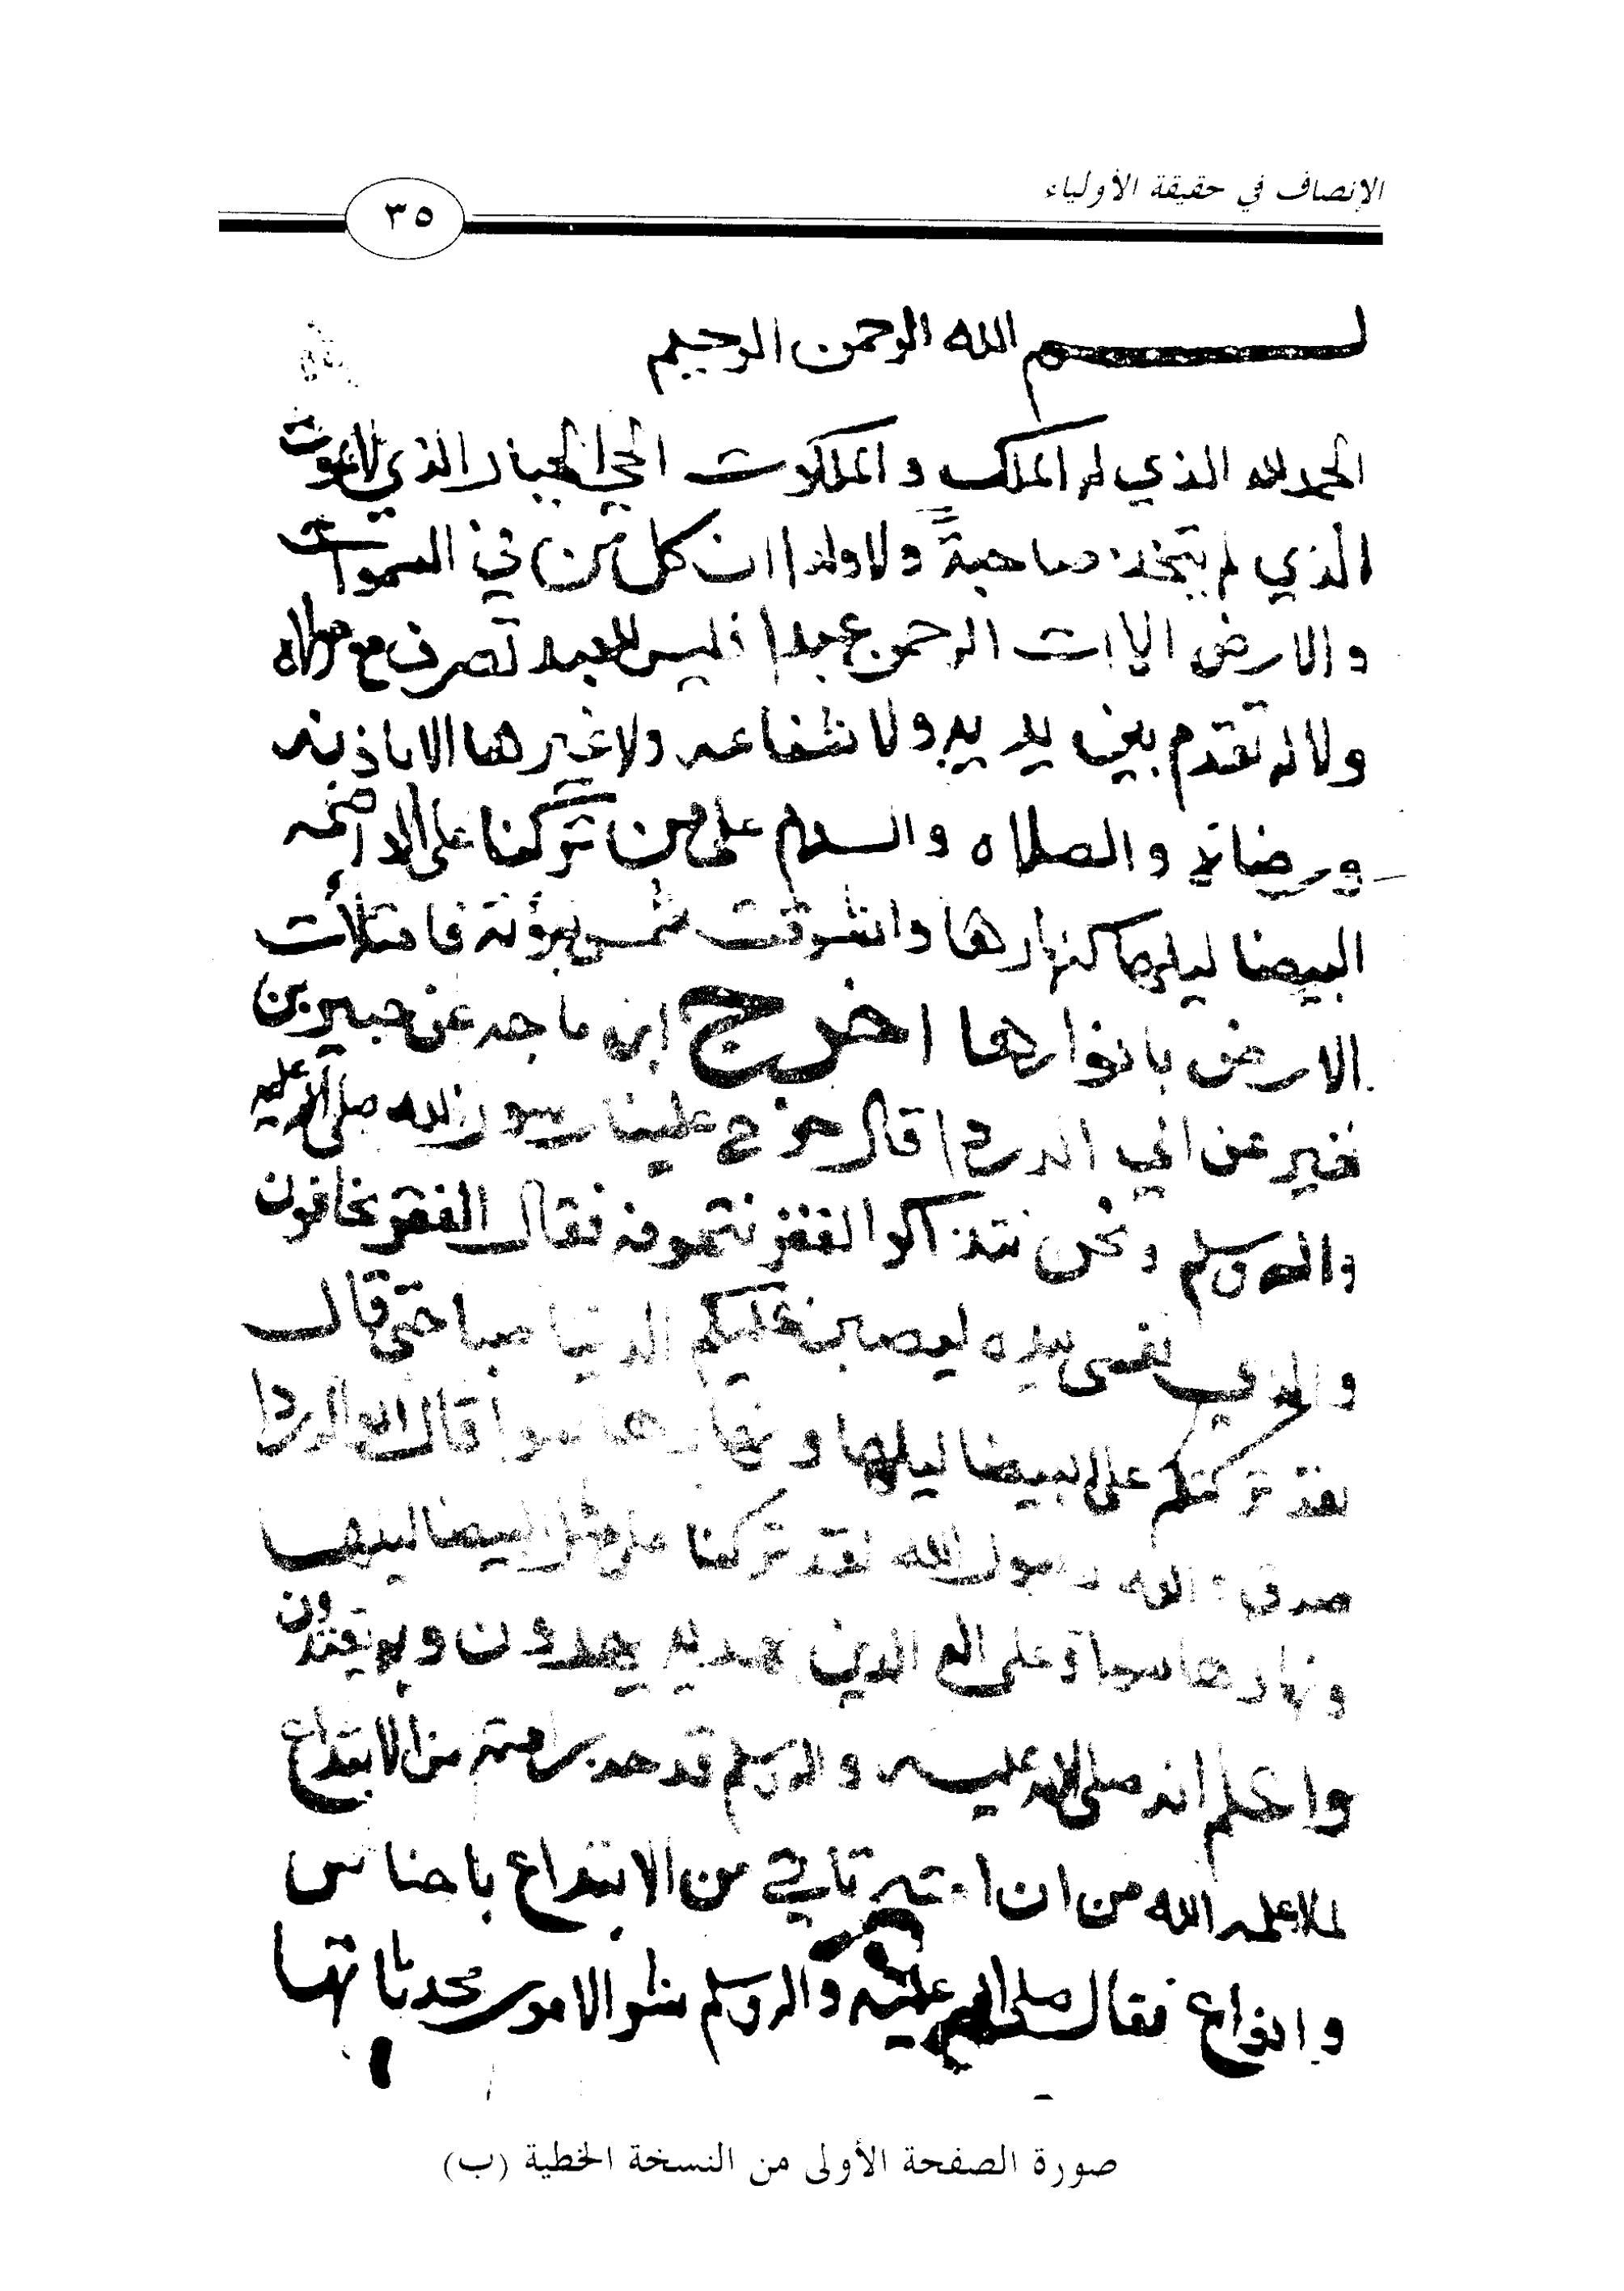 الإنصاف في حقيقة الأولياء
٣٥
بسم الله الرحمن الرحيم
الحمد لله الذي له الملك والملكوت الحي الجبار الذي لا يموت
الذي لم يتخذ صاحبة ولا ولدا ان كل من في السموات
والارض الا ات الرحمن عبدا فليس للعبد تصرف مع مولاه
ولا له تقدم بين يديه ولا شفاعه ولا غيرها الا باذنه
ورضاه والصلاه والسلام على من تركنا على الواضحه
البيضا ليلها كنهارها واشرقت شمس نبوته فامتلأت
الارض بانوارها اخرج ابن ماجه عن جبير بن
نفير عن ابي الدردا قال خرج علينا رسول الله صلى الله عليه
واله وسلم ونحن نتذاكر الفقر نتخوفه فقال الفقر تخافون
والذي نفسي بيده ليصبن عليكم الدنيا صبا حتى قال
لقد تركتكم على البيضا ليلها ونهارها سوا قال ابو الدردا
صدق الله رسول الله لقد تركنا على مثل البيضا ليلها
ونهارها سوا وعلى اله الذين بهديه يهدون وبه يقتدون
واعلم انه صلى الله عليه واله وسلم قد حذر امته من الابتداع
لما اعلمه الله من ان امته تاتي من الابتداع باجناس
وانواع فقال صلى الله عليه واله وسلم شر الامور محدثاتها
صورة الصفحة الأولى من النسخة الخطية (ب)